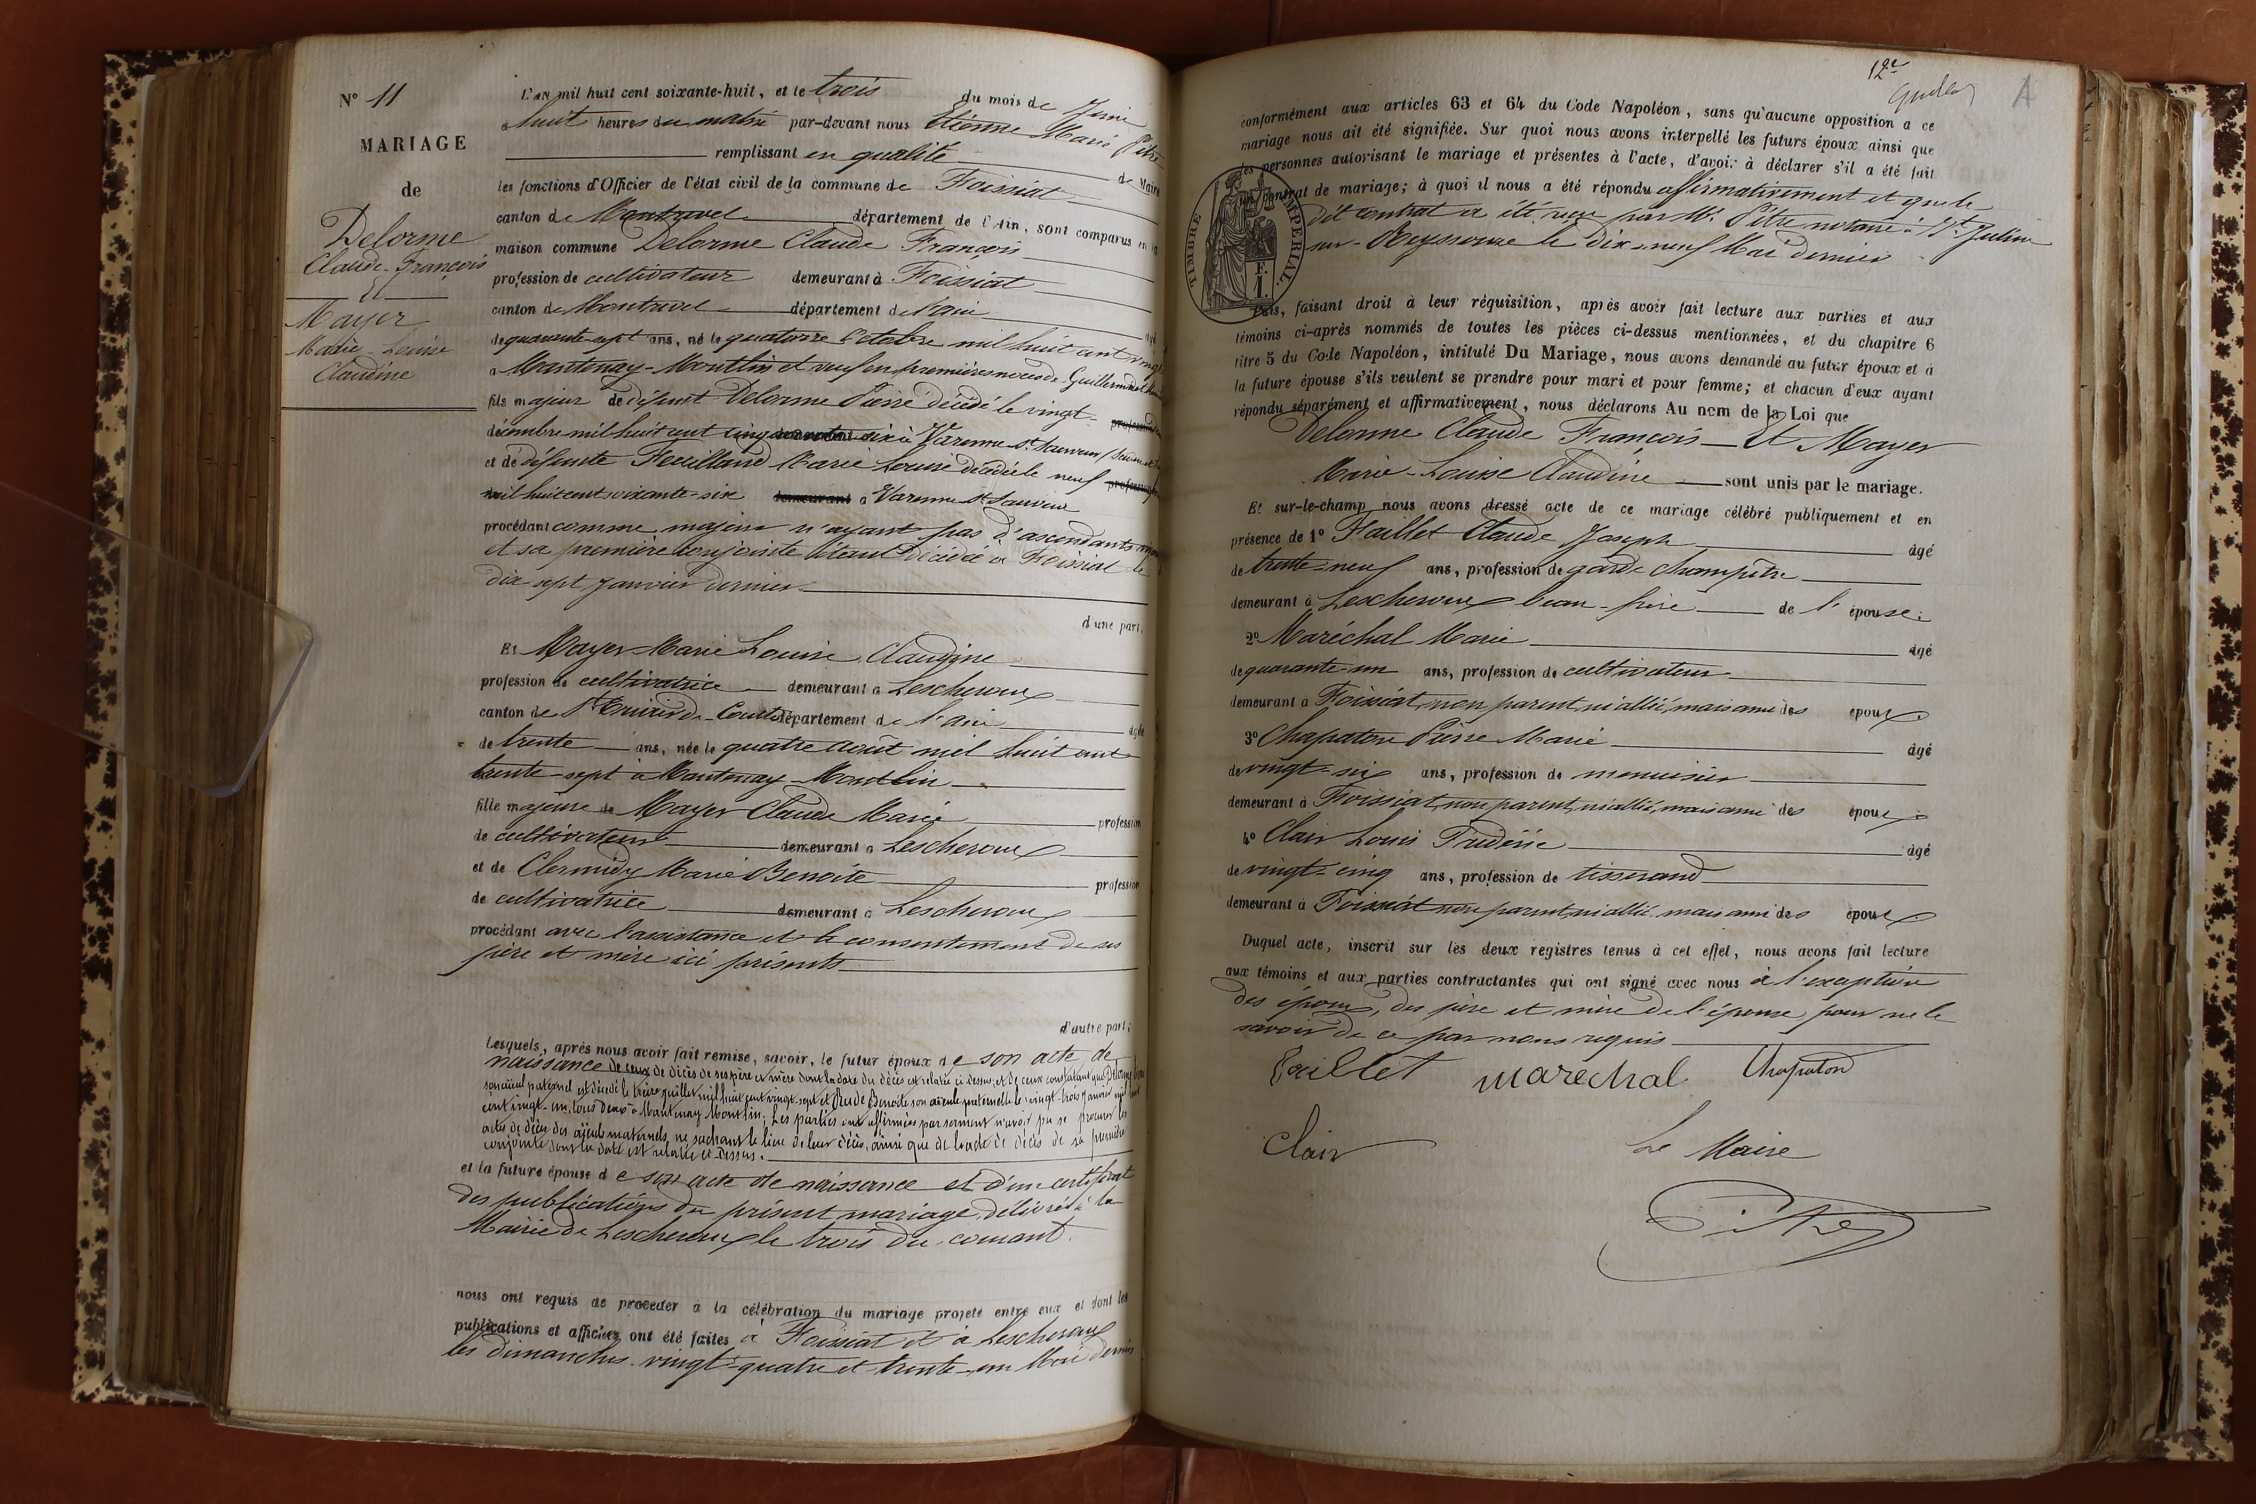 N° 11
MARIAGE
de
Delorme
Claude-François
Et
Mayer
Marie Louise
Claudine
L'AN mil huit cent soixante-huit, et le trois du mois de Juin
a huit heures du matin par-devant nous Etienne Marie Pitre
remplissant en qualité de Maire
les fonctions d'Officier de l'état civil de la commune de Foissiat
canton de Montrevel département de l'Ain, sont comparus en la
maison commune Delorme Claude François
profession de cultivateur demeurant à Foissiat
canton de Montrevel département de l'ain
de quarante-sept ans, né le quatorze Octobre mil huit cent vingt
a Mantenay-Montlin et veuf en premières noces de
fils majeur de défunt Delorme Pierre décédé le vingt
décembre mil huit cent cinquante six à Varenne St Sauveur
et de défunte Feuilland Marie Louise décédée le neuf
mil huit cent soixante-six demeurant a Varenne St Sauveur
procédant comme majeur n'ayant pas d'ascendants
et sa première conjointe étant décédée à Foissiat le
dix sept Janvier dernier
d'une part,
Et Mayer Marie Louise Claudine
profession de cultivatrice demeurant a Lescheroux
canton de St Trivier de-Courtes département de l'ain agée
de trente ans, née le quatre août mil huit cent
trente-sept à Mantenay-Montlin
fille majeure de Mayer Claude Marie profession
de cultivateur demeurant a Lescheroux
et de Clermidy Marie Benoite profession
de cultivatrice demeurant à Lescheroux
procédant avec l'assistance et le consentement de ses
père et mère ici présents
d'autre part;
Lesquels, après nous avoir fait remise, savoir, le futur époux de son acte de
naissance de ceux de décès de ses père et mère dont la date du décès est relatée ci dessus; et de ceux constatant que Delorme
son aïeul paternel est décédé le treize juillet mil huit cent vingt-sept et Benoite son aïeule paternelle le vingt-trois Janvier mil huit
cent vingt-un, tous deux à Mantenay Montlin; Les parties ont affirmées par serment n'avoir pu se procurer les
actes de décès des aïeuls maternels, ne sachant le lieu de leur décès, ainsi que de l'acte de décès de sa première
conjointe dont la date est relatée ci-dessus.
et la future épouse de son acte de naissance et d'un certificat
des publications du présent mariage, délivré à la
Mairie de Lescheroux le trois du courant.
nous ont requis de proceder à la célébration du mariage projeté entre eux et dont les
publications et affiches ont été faites à Foissiat et à Lescheroux
les dimanches vingt-quatre et trente-un Mai dernier
12e
A
conformément aux articles 63 et 64 du Code Napoléon, sans qu'aucune opposition a ce
mariage nous ait été signifiée. Sur quoi nous avons interpellé les futurs époux ainsi que
les personnes autorisant le mariage et présentes à l'acte, d'avoir à déclarer s'il a été fait
un contrat de mariage; à quoi il nous a été répondu affirmativement et que le
dit contrat a été reçu par Me Pitre notaire à St Julien
sur-Reyssouze le dix-neuf Mai dernier
TIMBRE IMPERIAL
Puis, faisant droit à leur réquisition, après avoir fait lecture aux parties et aux
témoins ci-après nommés de toutes les pièces ci-dessus mentionnées, et du chapitre 6
titre 5 du Code Napoléon, intitulé Du Mariage, nous avons demandé au futur époux et à
la future épouse s'ils veulent se prendre pour mari et pour femme; et chacun d'eux ayant
répondu séparément et affirmativement, nous déclarons Au nom de la Loi que
Delorme Claude François Et Mayer
Marie-Louise Claudine sont unis par le mariage.
Et sur-le-champ nous avons dressé acte de ce mariage célébré publiquement et en
présence de 1° Faillet Claude Joseph âgé
de trente-neuf ans, profession de garde champêtre
demeurant à Lescheroux beau-frère de l'épouse.
2° Maréchal Marie âgé
de quarante-un ans, profession de cultivateur
demeurant a Foissiat, non parent, ni allié, mais ami des epoux
3° Chapaton Pierre Marie âgé
de vingt-six ans, profession de menuisier
demeurant à Foissiat, non parent, ni allié, mais ami des epoux
4° Clair Louis Fridérie âgé
de vingt-cinq ans, profession de tisserand
demeurant à Foissiat non parent, ni allié, mais ami des epoux
Duquel acte, inscrit sur les deux registres tenus à cet effet, nous avons fait lecture
aux témoins et aux parties contractantes qui ont signé avec nous à l'exception
des époux, des père et mère de l'épouse pour ne le
savoir de ce par nous requis
Faillet marechal Chapaton
Clair Le Maire
Pitre